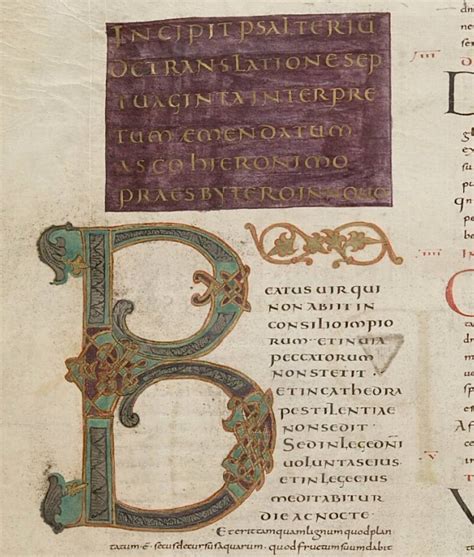 INCIPIT PSALTERIU
DE TRANSLATIONE SEP
TUAGINTA INTERPRE
TUM EMENDATUM
A SCO HIERONIMO
PRAESBYTERO IN NOUO
BEATUS UIR QUI
NON ABIIT IN
CONSILIO IMPIO
RUM ET IN UIA
PECCATORUM
NON STETIT
ET IN CATHEDRA
PESTILENTIAE
NON SEDIT
SED IN LEGE DNI
UOLUNTAS EIUS
ET IN LEGE EIUS
MEDITABITUR
DIE AC NOCTE
Et erit tamquam lignum quod plan
tatum ē secus decursus aquarum. quod fructum suum dabit